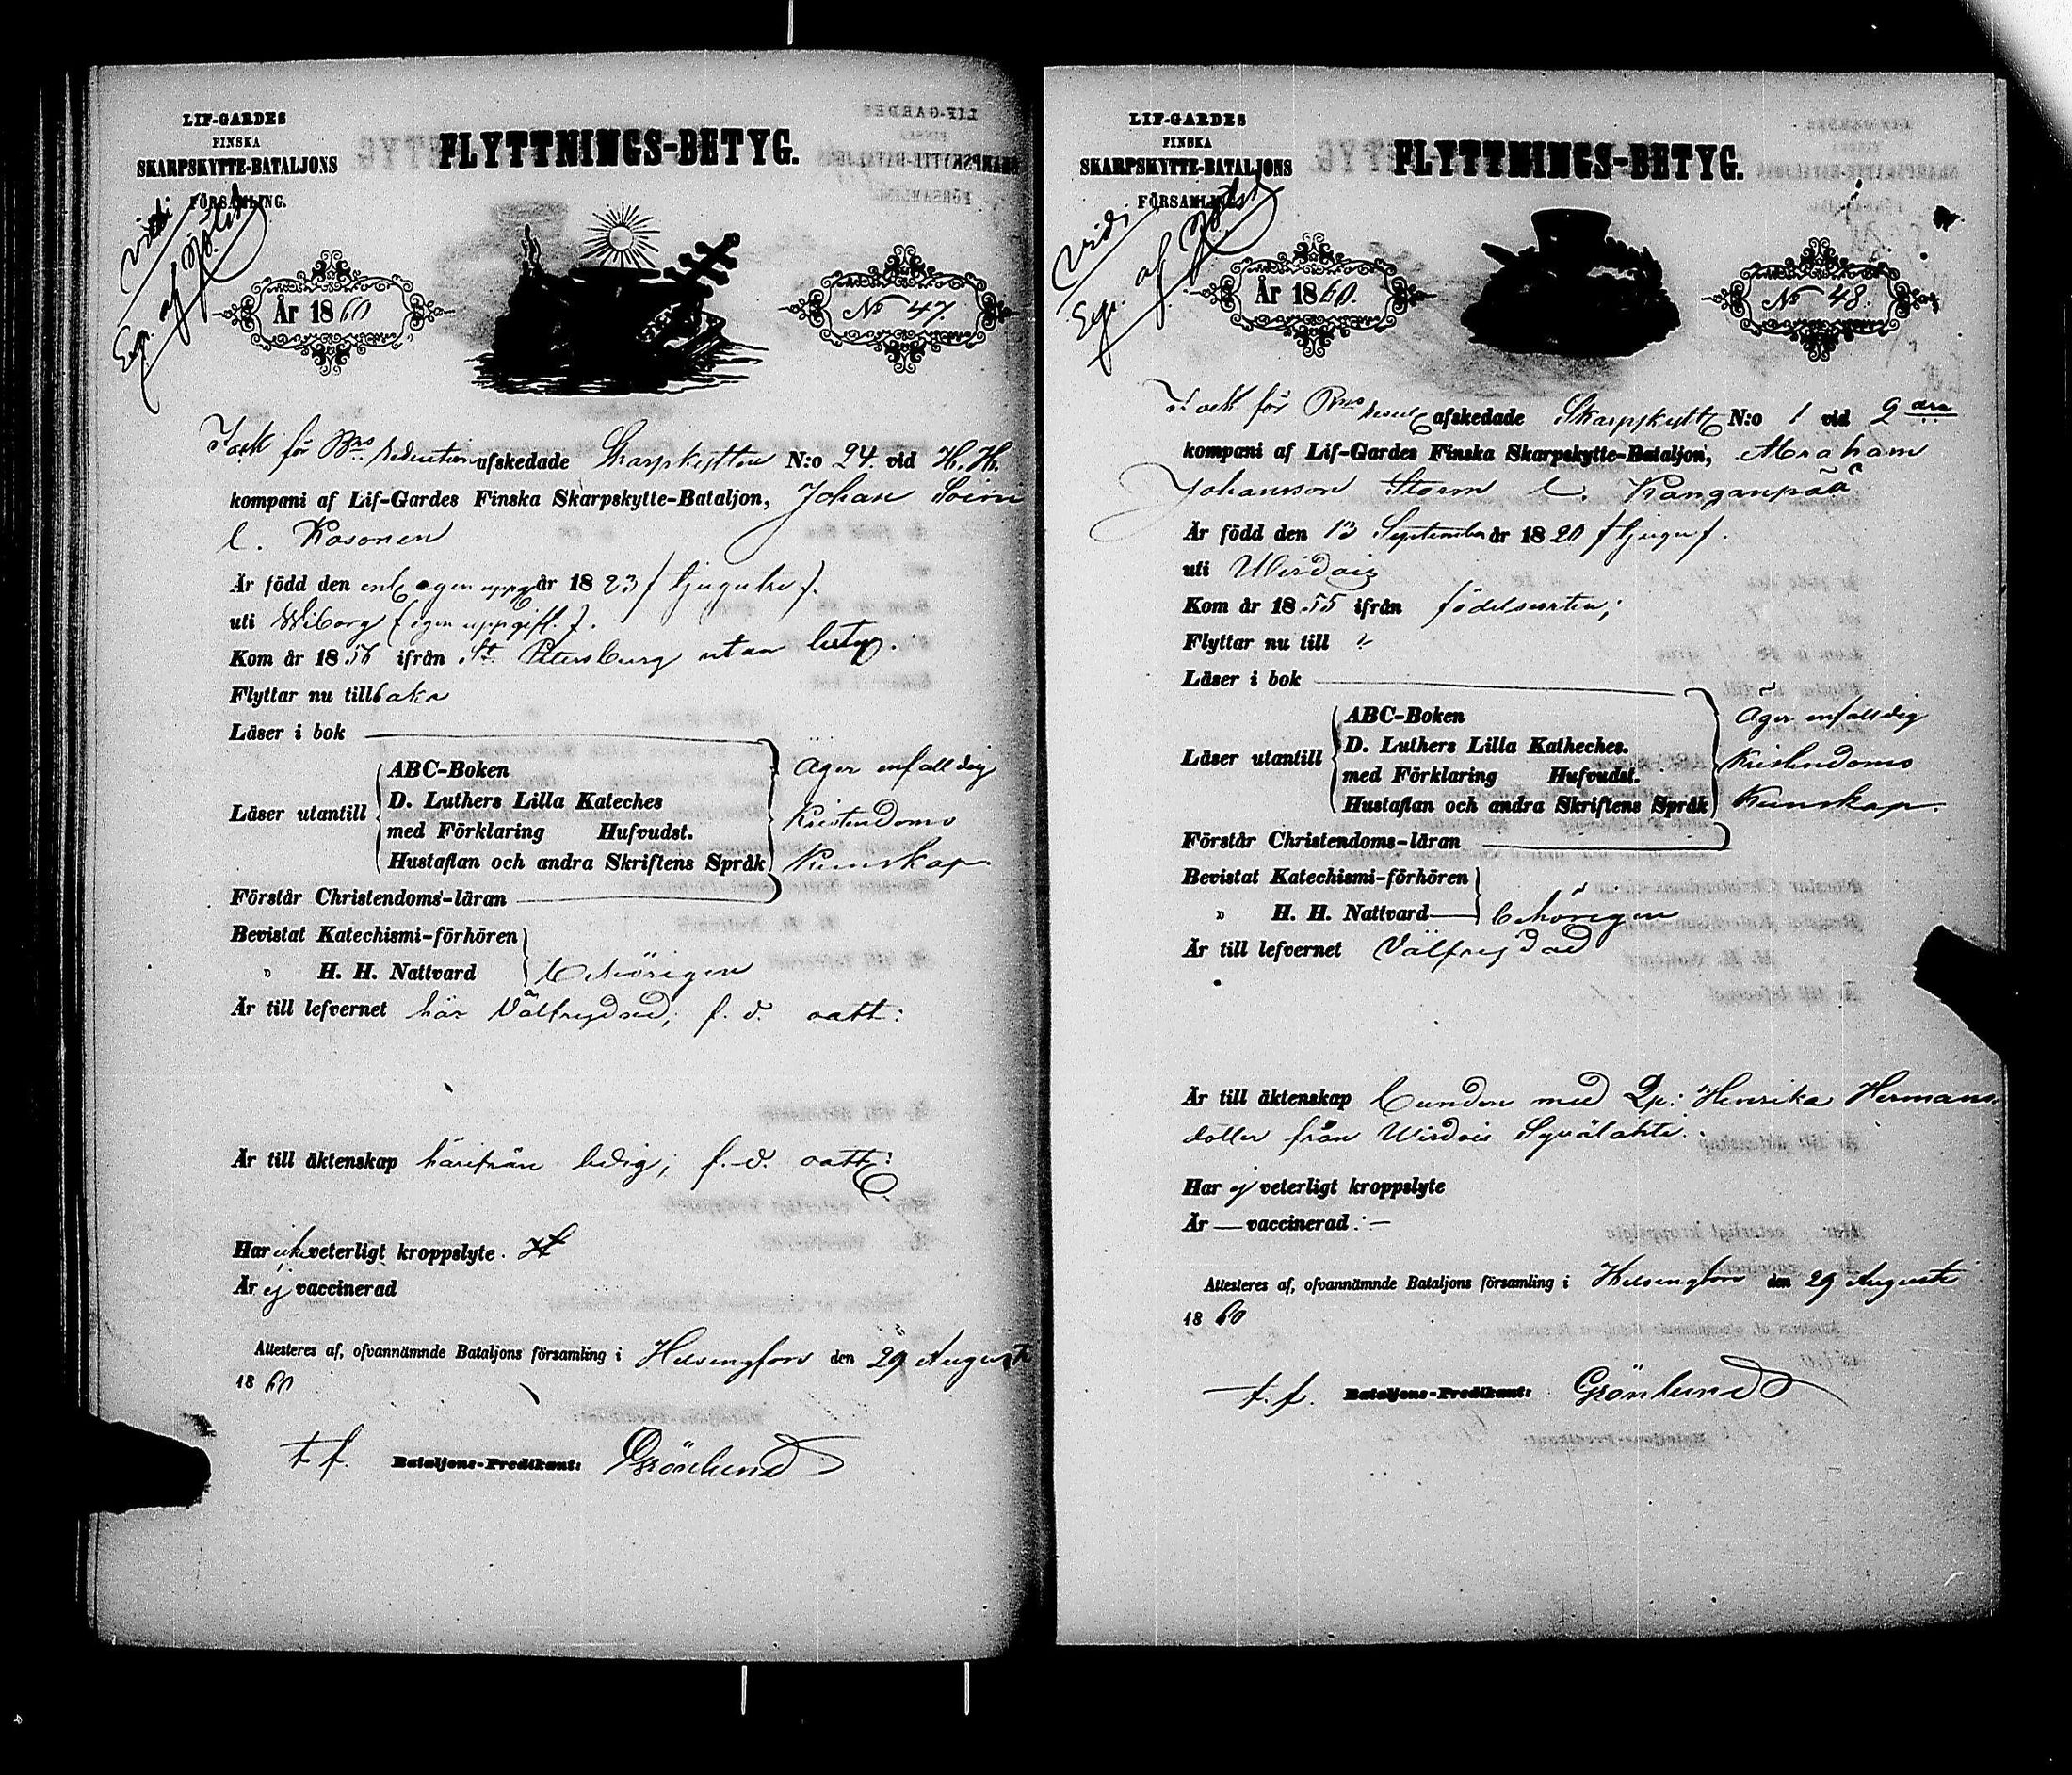 LIF-GARDES
FINSKA
SKARPSKYTTE-BATALJONS
FÖRSAMLING.
FLYTTNINGS-BETYG.
Vidi
År 1860
No 47.
för afskedade Skarpskytten N:o 24. vid H. H.
kompani af Lif-Gardes Finska Skarpskytte-Bataljon, Johan
l. Kosonen
Är född den enl. egen uppg. år 1823 (tjugutre).
uti Wiborg (egen uppgift).
Kom år 1856 ifrån St. Petersburg utan betyg.
Flyttar nu tillbaka
Läser i bok
Läser utantill
ABC-Boken
D. Luthers Lilla Kateches
med Förklaring Hufvudst.
Hustaflan och andra Skriftens Språk
Äger enfalldig
Kristendoms
Kunskap.
Förstår Christendoms-läran
Bevistat Katechismi-förhören
" H. H. Nattvard
behörigen
Är till lefvernet här Välfrejdad; f. d.
Är till äktenskap härifrån ledig; f. d.
Har icke veterligt kroppslyte.
Är ej vaccinerad
Attesteres af, ofvannämnde Bataljons församling i Helsingfors den 29 Augusti
1860
t. f. Bataljons-Predikant: Grönlund
LIF-GARDES
FINSKA
SKARPSKYTTE-BATALJONS
FÖRSAMLING.
FLYTTNINGS-BETYG.
Vidi
År 1860.
No 48.
för afskedade Skarpskytte N:o 1 vid 2dra
kompani af Lif-Gardes Finska Skarpskytte-Bataljon, Abraham
Johansson Storm l. Kanganpää
Är född den 13 September år 1820 (tjugu).
uti Wirdois
Kom år 1855 ifrån födelseorten;
Flyttar nu till ?
Läser i bok
Läser utantill
ABC-Boken
D. Luthers Lilla Katheches.
med Förklaring Hufvudst.
Hustaflan och andra Skriftens Språk
Äger enfalldig
Kristendoms
Kunskap.
Förstår Christendoms-läran
Bevistat Katechismi-förhören
" H. H. Nattvard
behörigen
Är till lefvernet Välfrejdad
Är till äktenskap bunden med Henrika Hermans-
dotter från Wirdois
Har ej veterligt kroppslyte
Är — vaccinerad: —
Attesteres af, ofvannämnde Bataljons församling i Helsingfors den 29 Augusti
1860
t. f. Bataljons-Predikant: Grönlund